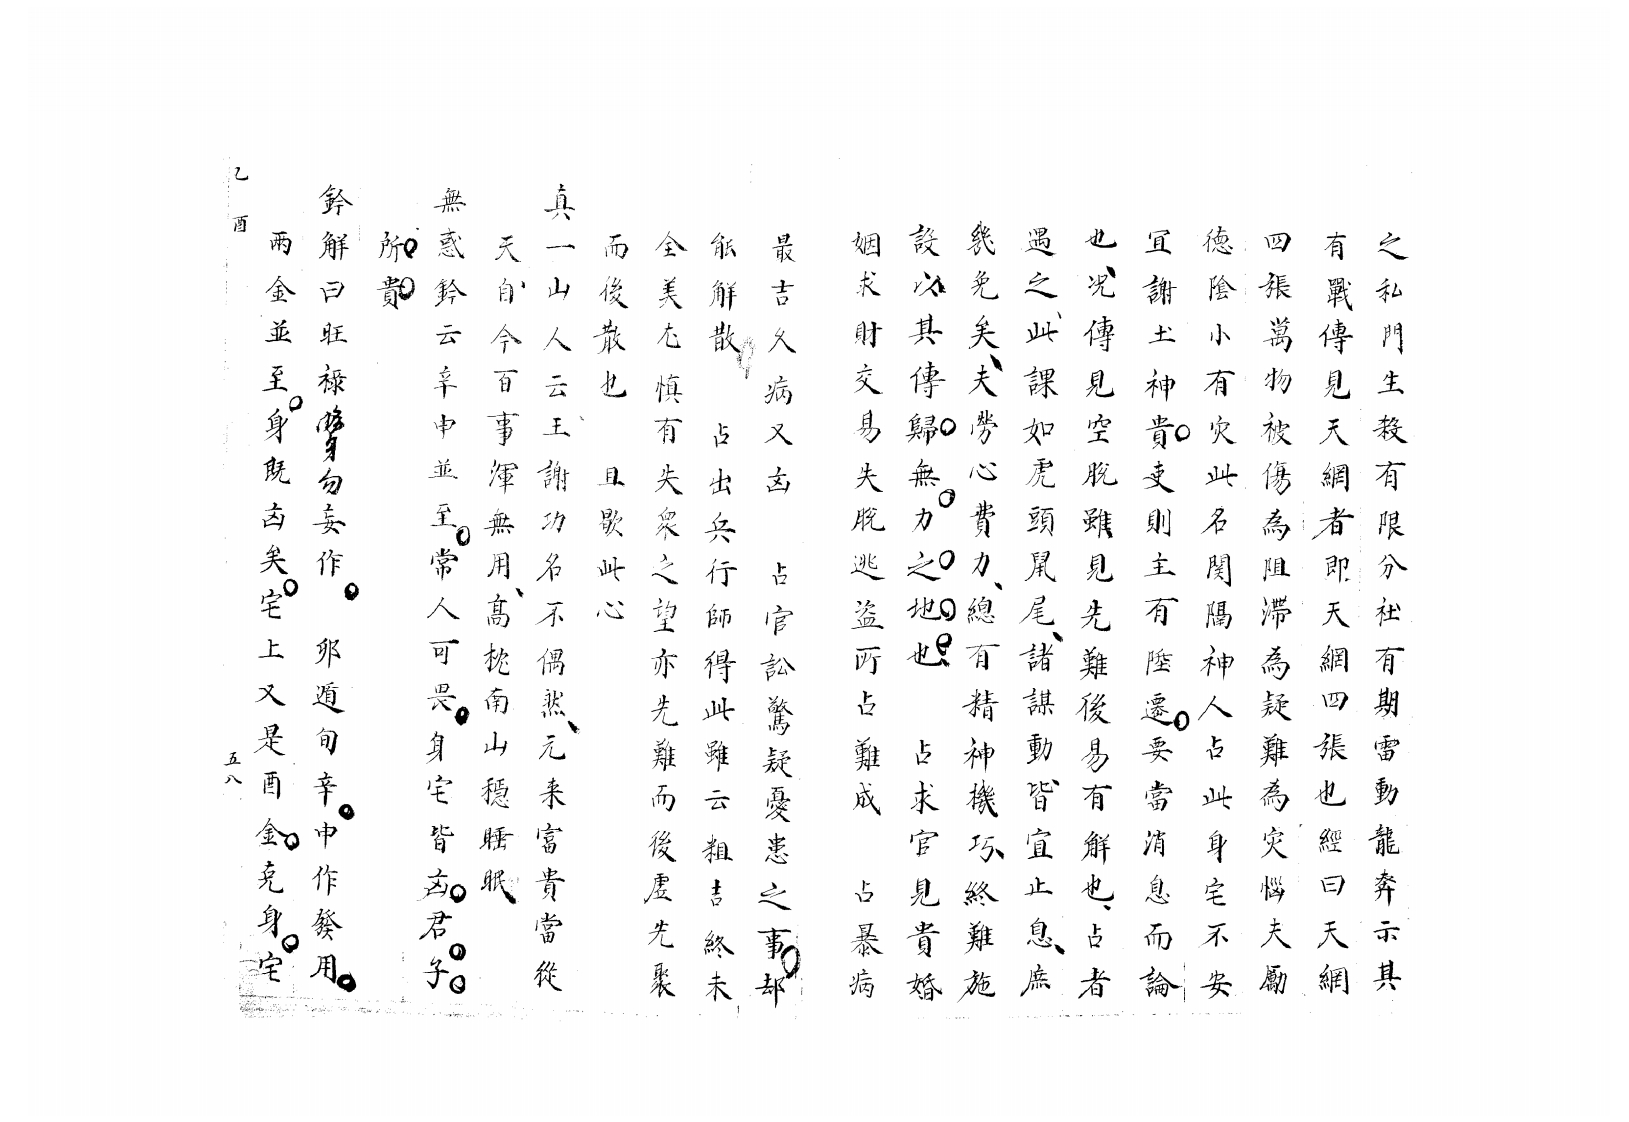 之私門生殺有限分社有期雷動龍奔示其
有戰傳見天網者即天網四張也經曰天網
四張萬物被傷為阻滯為疑難為災惱夫勵
德陰小有災此名関隔神人占此身宅不安
宜謝土神貴吏則主有陞遷要當消息而論
也況傳見空脫雖見先難後易有解也占者
遇之此課如虎頭鼠尾諸謀動皆宜止息庶
幾免矣夫勞心費力總有精神機巧終難施
設以其傳歸無力之地也 占求官見貴婚
姻求財交易失脫逃盜所占難成 占暴病
最吉久病又凶 占官訟驚疑憂患之事却
能解散 占出兵行師得此雖云粗吉終未
全美尤慎有失眾之望亦先難而後虛先聚
而後散也 且歇此心
真一山人云王謝功名不偶然元来富貴當從
天自今百事渾無用高枕南山穩睡眠
無惑鈐云辛申並至常人可畏身宅皆凶君子
所貴
鈐解曰旺祿雙勿妄作 夘遁旬辛申作發用
兩金並至身既凶矣宅上又是酉金克身宅
乙酉
五八